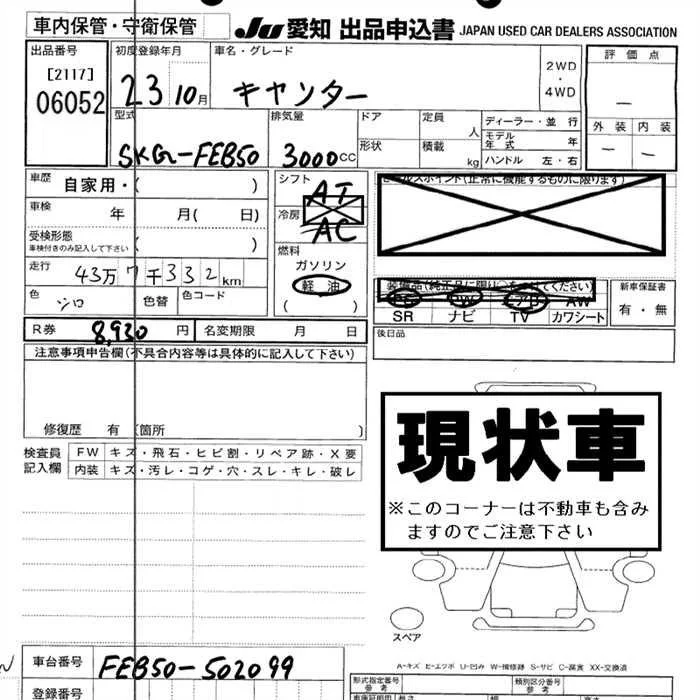 車内保管・守衛保管 JU 愛知 出品申込書 JAPAN USED CAR DEALERS ASSOCIATION
出品番号 初度登録年月 車名・グレード 評価点
[2117] 23 10月 キャンター 2WD・4WD
06052
型式 排気量 ドア 定員 人 ディーラー・並行 外装 内装
モデル年式 年
SKG-FEB50 3000cc 形状 積載 kg ハンドル 左・右
車歴 自家用・( ) シフト AT
車検 年 月( 日) 冷房 AC
受検形態
車検付きのみ記入して下さい ( ) 燃料
ガソリン
走行 43万7千332km 軽油 装備品(純正品に限り○をつけてください) 新車保証書
色 シロ 色替 色コード ( ) PS PW エアB AW 有・無
SR ナビ TV カワシート
R券 8,930円 名変期限 月 日 後日品
注意事項申告欄(不具合内容等は具体的に記入して下さい)
修復歴 有 (箇所 )
検査員記入欄 FW キズ・飛石・ヒビ割・リペア跡・X要
内装 キズ・汚レ・コゲ・穴・スレ・キレ・破レ
現状車
※このコーナーは不動車も含み
ますのでご注意下さい
スペア
A-キズ E-エクボ U-凹み W-補修跡 S-サビ C-腐食 XX-交換済
車台番号 FEB50-502099 形式指定番号 参考 類別区分番号 参考
登録番号